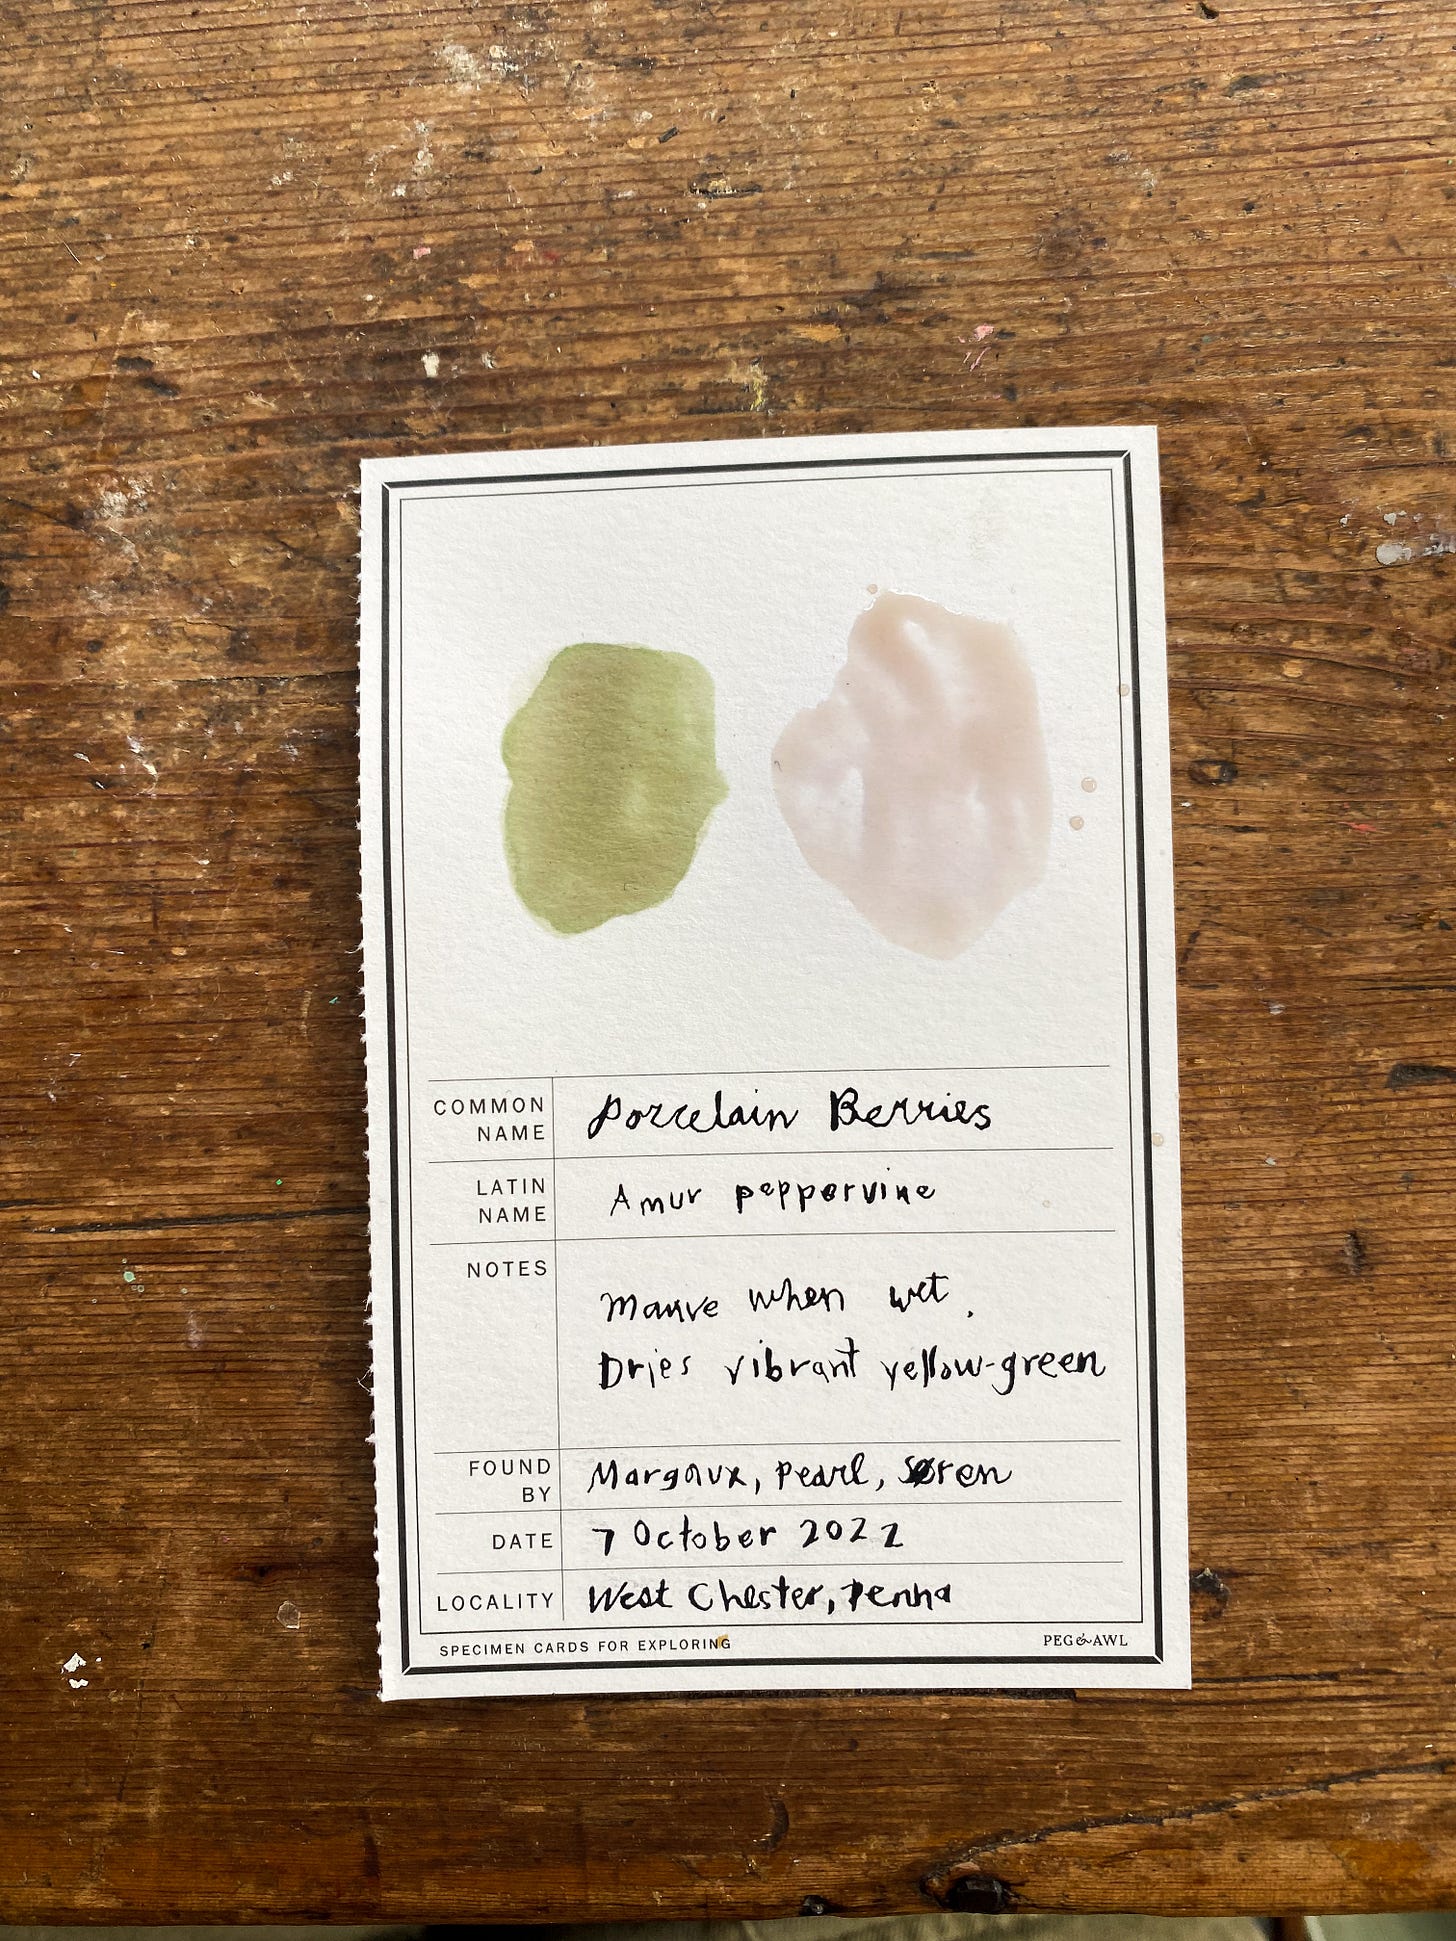 COMMON NAME Porcelain Berries
LATIN NAME Amur peppervine
NOTES
Mauve when wet.
Dries vibrant yellow-green
FOUND BY Margaux, Pearl, Søren
DATE 7 October 2022
LOCALITY West Chester, Penna
SPECIMEN CARDS FOR EXPLORING PEG & AWL